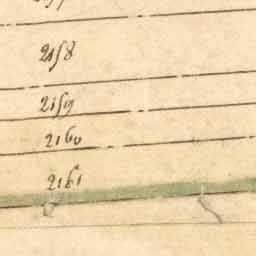 2158
2159
2160
2161